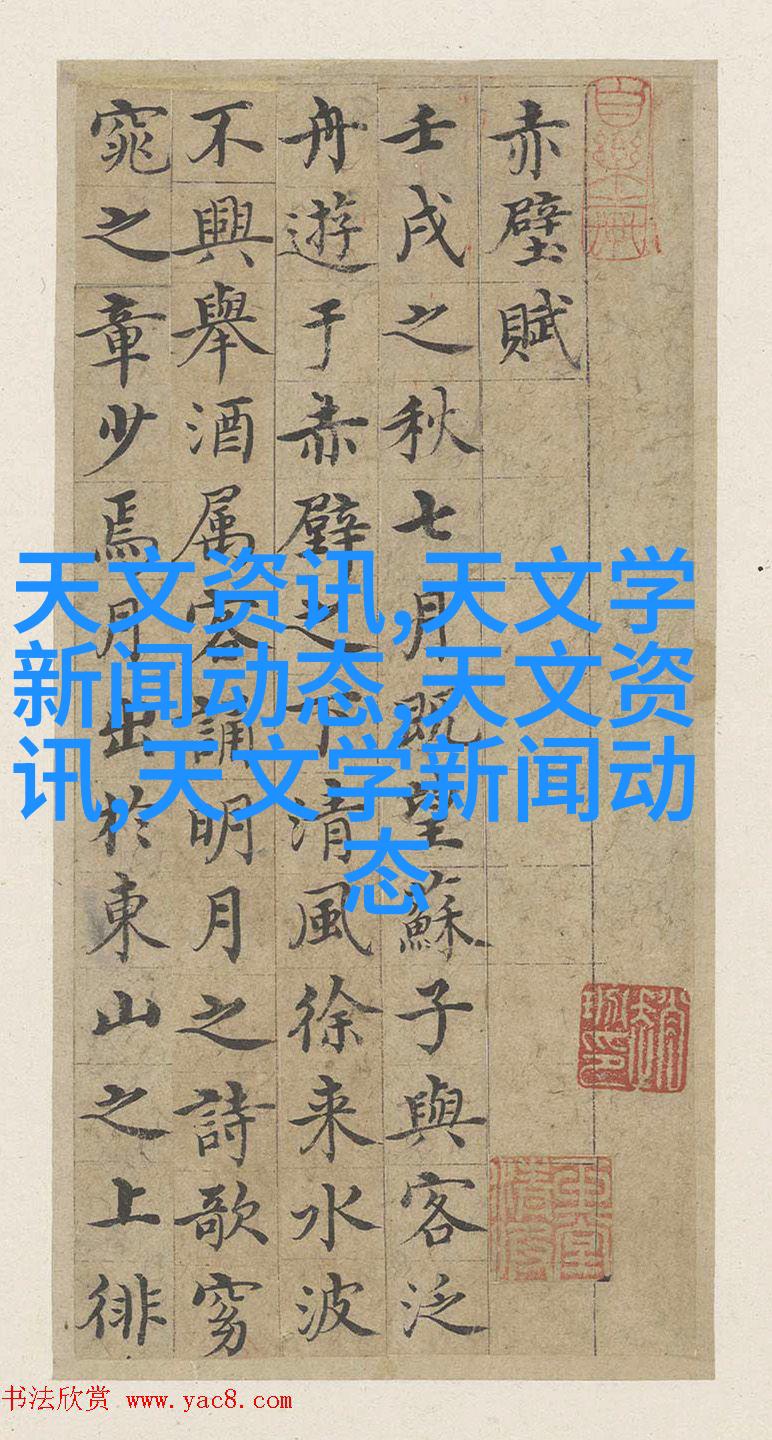 赤壁賦
壬戌之秋七月既望蘇子與客泛
舟遊于赤壁之下清風徐来水波
不興舉酒属客誦明月之詩歌窈
窕之章少焉月出於東山之上徘
天文资讯,天文学
新闻动态,天文资
讯,天文学新闻动
态
书法欣赏 www.yac8.com